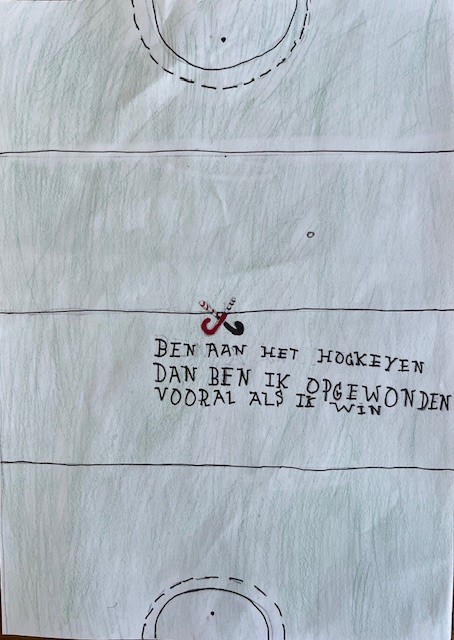 BEN AAN HET HOCKEYEN
DAN BEN IK OPGEWONDEN
VOORAL ALS IK WIN